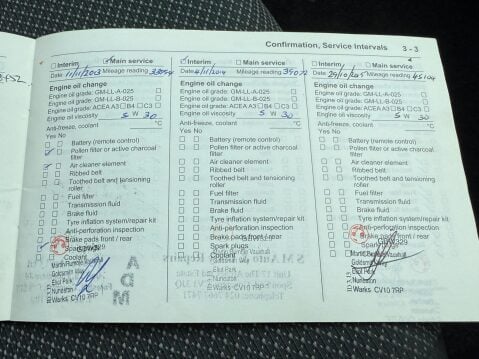 Confirmation, Service Intervals 3 - 3
Interim Main service
Date 11/11/2013 Mileage reading
Engine oil change
Engine oil grade: GM-LL-A-025
Engine oil grade: GM-LL-B-025
Engine oil grade: ACEA A3 B4 C3
Engine oil viscosity 5 W 30
Anti-freeze, coolant °C
Yes No
Battery (remote control)
Pollen filter or active charcoal
filter
Air cleaner element
Ribbed belt
Toothed belt and tensioning
roller
Fuel filter
Transmission fluid
Brake fluid
Tyre inflation system/repair kit
Anti-perforation inspection
Brake pads front / rear
Coolant
Eliot Park
Nuneaton
Warks CV10 7RP
Interim Main service
Date 4/11/2014 Mileage reading
Engine oil change
Engine oil grade: GM-LL-A-025
Engine oil grade: GM-LL-B-025
Engine oil grade: ACEA A3 B4 C3
Engine oil viscosity 5 W 30
Anti-freeze, coolant °C
Yes No
Battery (remote control)
Pollen filter or active charcoal
filter
Air cleaner element
Ribbed belt
Toothed belt and tensioning
roller
Fuel filter
Transmission fluid
Brake fluid
Tyre inflation system/repair kit
Anti-perforation inspection
Brake pads front / rear
Spark plugs
Coolant
Eliot Park
Nuneaton
Warks CV10 7RP
Interim Main service
Date Mileage reading 45104
Engine oil change
Engine oil grade: GM-LL-A-025
Engine oil grade: GM-LL-B-025
Engine oil grade: ACEA A3 B4 C3
Engine oil viscosity 5 W 30
Anti-freeze, coolant °C
Yes No
Battery (remote control)
Pollen filter or active charcoal
filter
Air cleaner element
Ribbed belt
Toothed belt and tensioning
roller
Fuel filter
Transmission fluid
Brake fluid
Tyre inflation system/repair kit
Anti-perforation inspection
Brake pads front / rear
Eliot Park
Nuneaton
Warks CV10 7RP